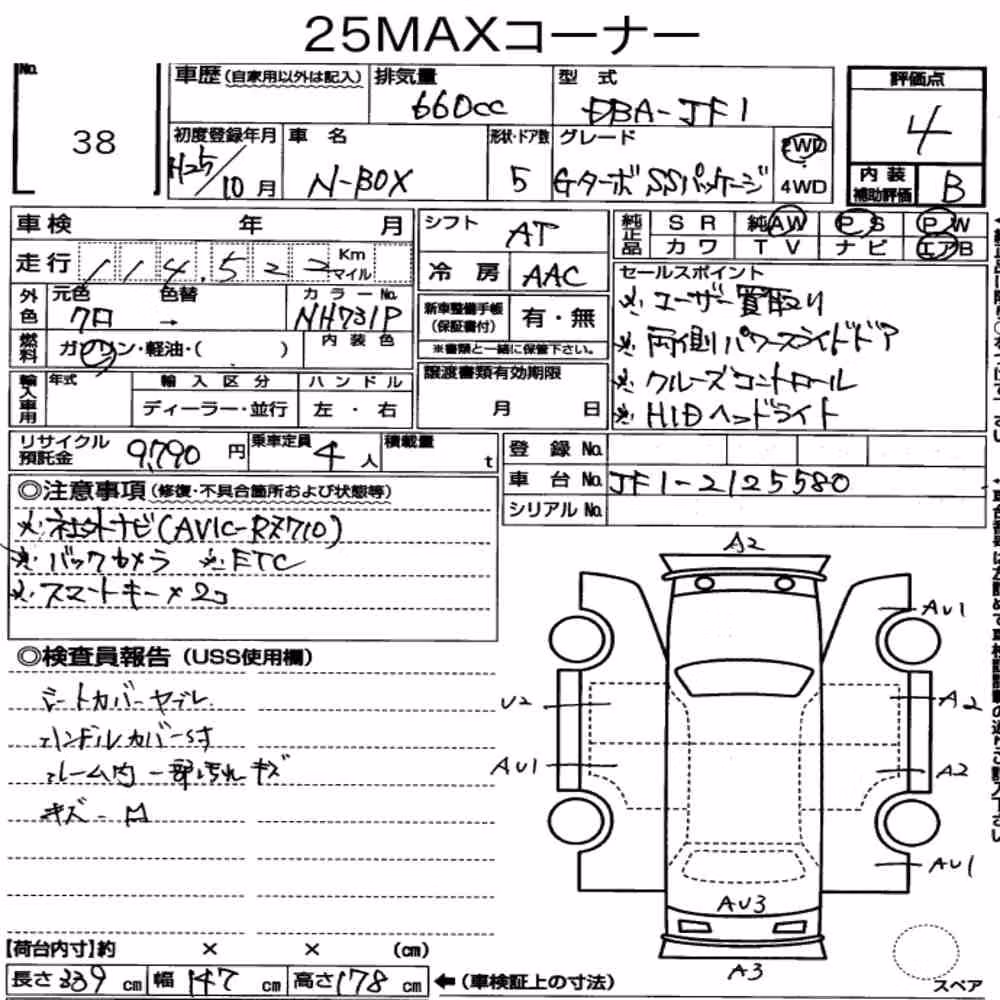 25MAXコーナー
No.
38
車歴(自家用以外は記入)
排気量
660cc
型式
DBA-JF1
評価点
4
初度登録年月
H25/10月
車名
N-BOX
形状・ドア数
5
グレード
Gターボ SSパッケージ
2WD
4WD
内装
補助評価
B
車検 年 月
シフト
AT
純正品
SR 純AW PS PW
カワ TV ナビ エアB
走行 114,522 Km マイル
冷房
AAC
セールスポイント
※ユーザー買取り
※両側パワースライドドア
※クルーズコントロール
※HIDヘッドライト
外色 元色 色替 カラーNo.
→ NH731P
新車整備手帳
(保証書付)
有・無
※書類と一緒に保管下さい。
燃料 ガソリン・軽油・( )
内装色
輸入車用 年式 輸入区分 ハンドル
ディーラー・並行 左・右
譲渡書類有効期限
月 日
リサイクル
預託金
9,790円
乗車定員
4人
積載量
t
登録No.
車台No. JF1-2125580
シリアルNo.
◎注意事項(修復・不具合箇所および状態等)
※社外ナビ(AVIC-RZ710)
※バックカメラ ※ETC
※スマートキー×2コ
◎検査員報告(USS使用欄)
シートカバーヤブレ
ハンドルカバー付
ルーム内一部汚れキズ
A2
AU1
U2
A2
AU1
A2
AU1
AU3
A3
スペア
【荷台内寸】約 × × (cm)
長さ339cm 幅147cm 高さ178cm ←(車検証上の寸法)